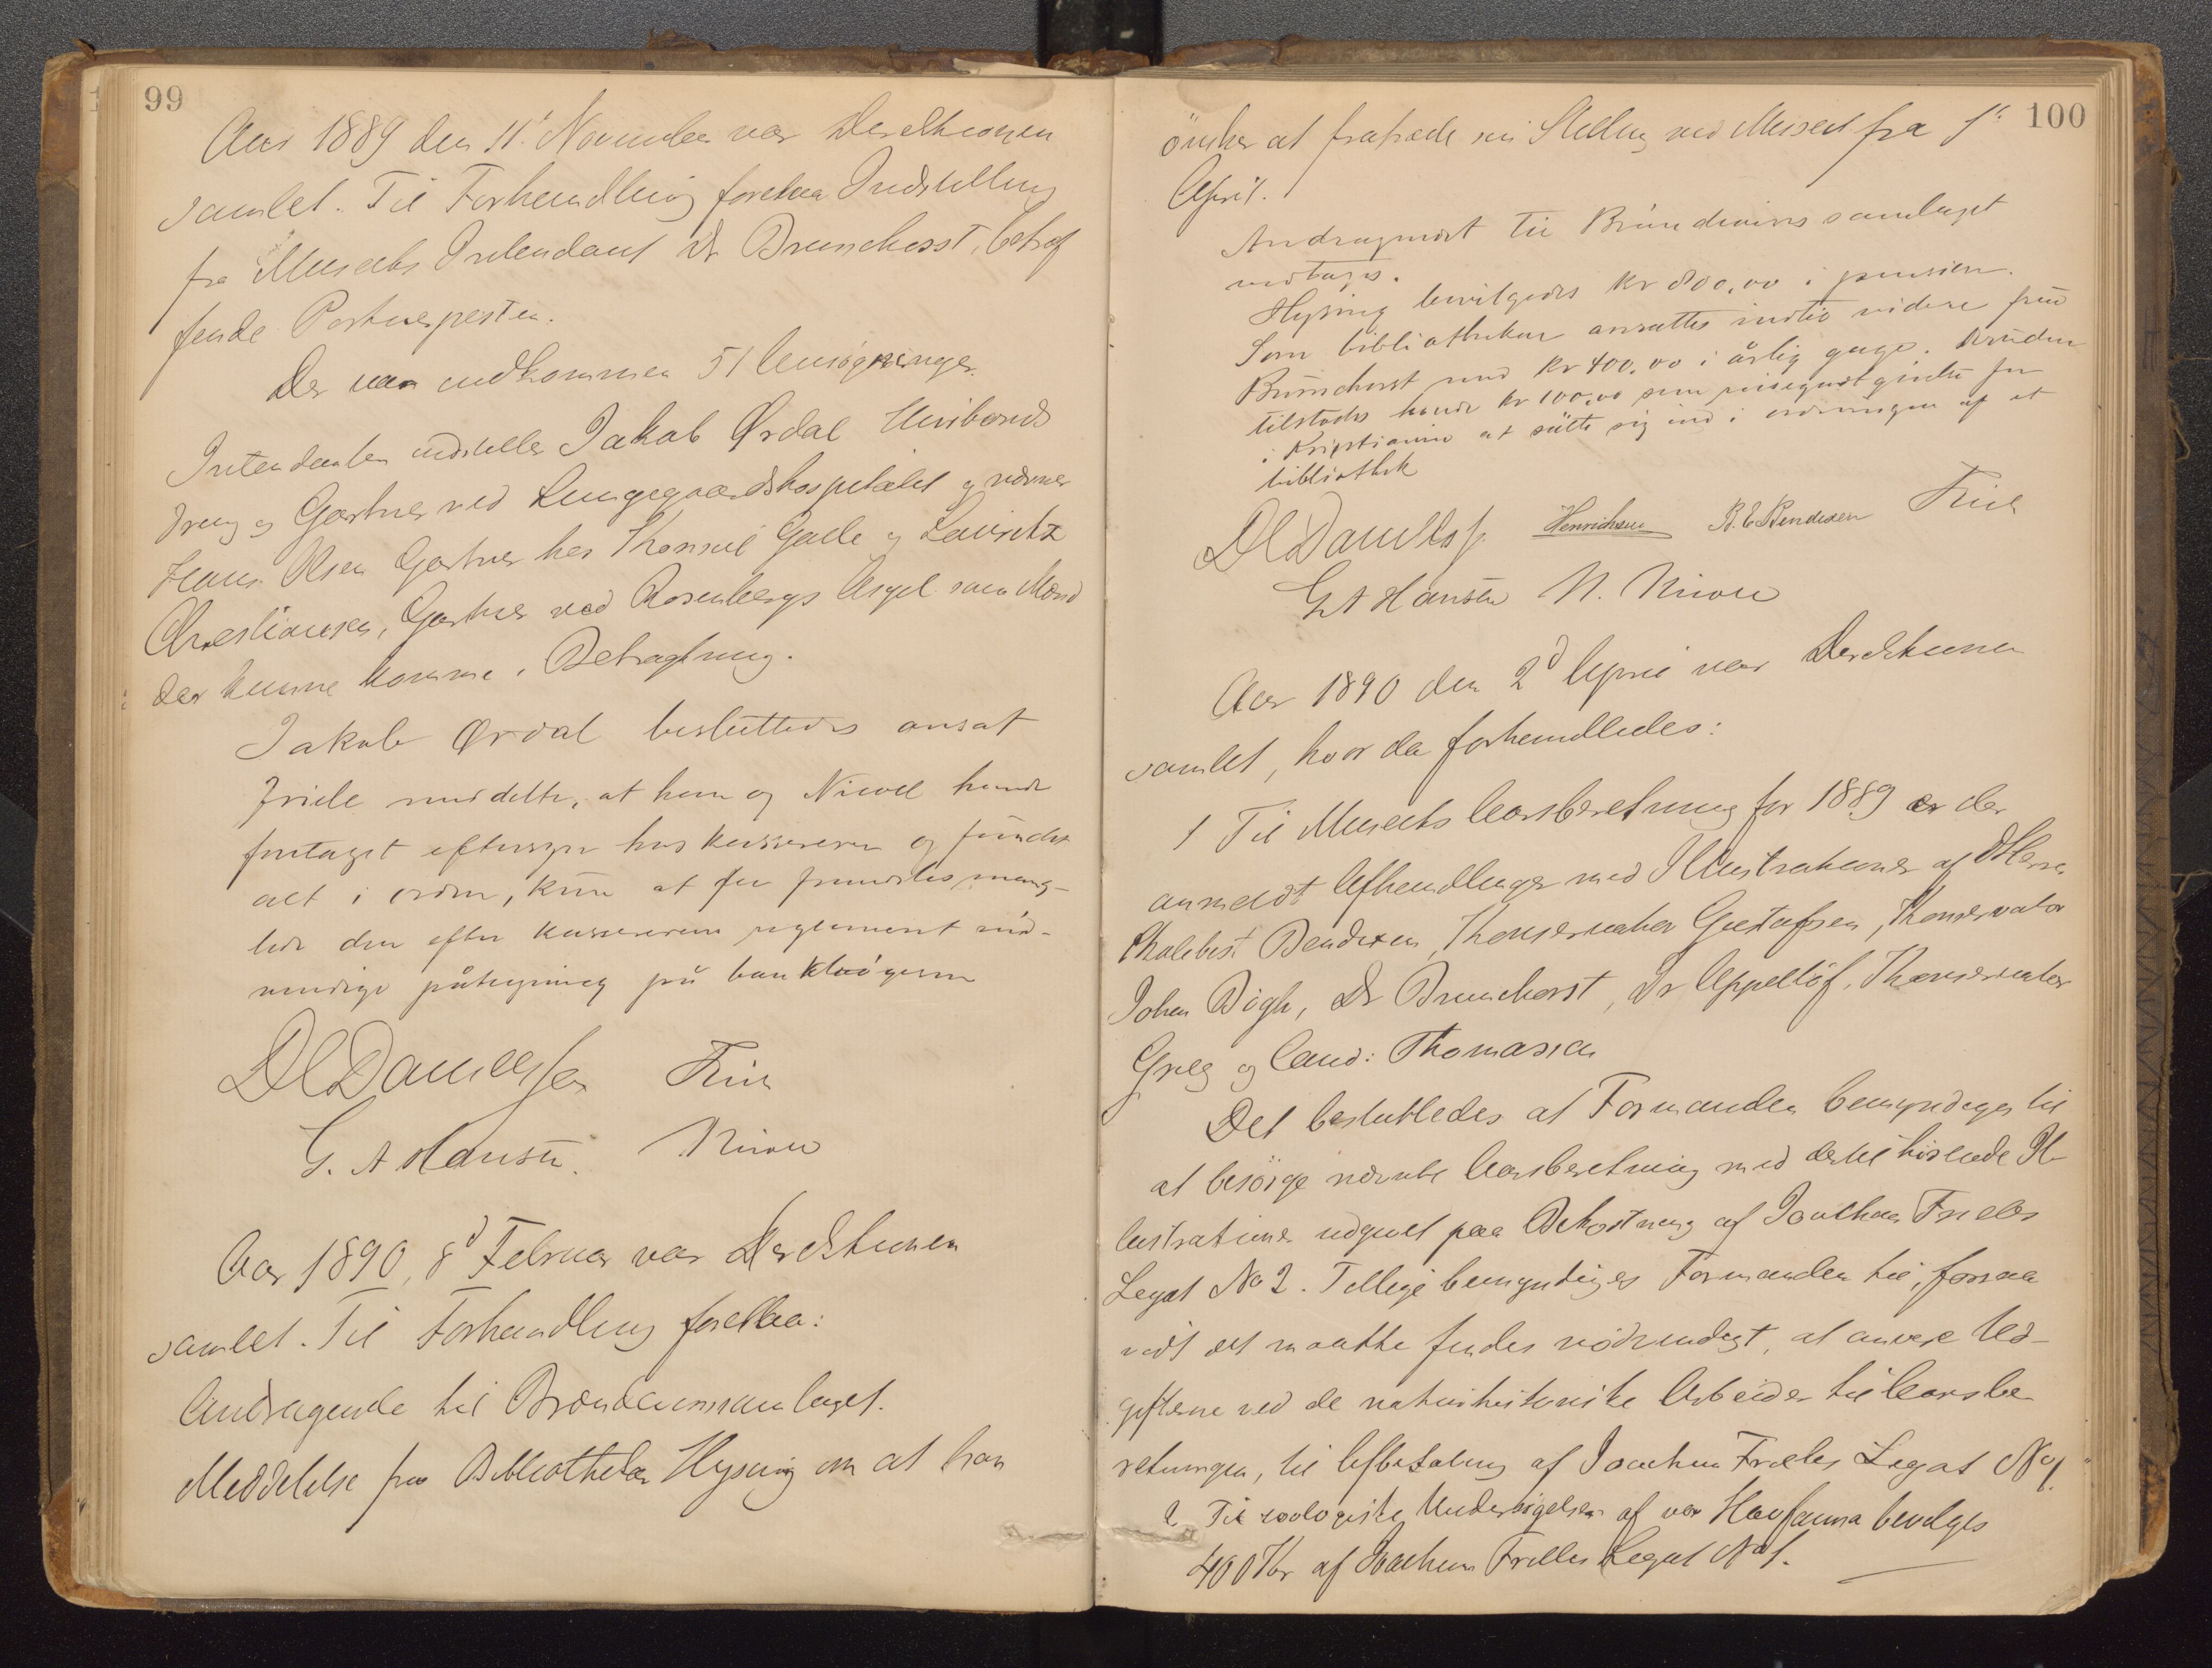 99
Aar 1889 den 11' November var Direktionen
samlet. Til Forhandling forelaa Indstilling
fra Museets Intendant Dr Brunchorst, betræf
fende Portnerposten.
Der var indkommen 51 Ansøgninger.
Intendenten indstiller Jakob Ørdal
Dreng og Gartner ved Lungegaardshospitalet
Hans Olsen Gartner hos Konsul Gade og Lauritz
Christiansen, Gartner ved Rosenbergs Asyl som Mænd
der kunne komme i Betragtning.
Jakob Ørdal besluttedes ansat
Friele meddelte, at han og Nicoll havde
foretaget eftersyn hos kassereren og fundet
alt i orden, kun at der fremdeles mang-
lede den efter kassererens reglement nød-
vendige påtegning på bankbøgerne
DC Danielssen Friele
G. A Hansen. Nicoll
Aar 1890, 8d Februar var Direktionen
samlet. Til Forhandling forelaa:
Andragende til Brændevinssamlaget.
Meddelelse fra Bibliothekar Hysing om at han
100
önsker at fratræde sin Stilling ved Museet fra 1ste
April.
Andragendet til Brændevinssamlaget
vedtages.
Hysing bevilgedes kr 800,00 i pension.
Som bibliothekar ansattes indtil videre frue
Brunchorst med kr 400,00 i årlig gage. Desuden
tilstodes hende kr 100,00 som reisegodtgjørelse for
i Kristiania at sætte sig ind i ordningen af et
bibliothek
DC Danielssen Henrichsen B. E Bendixen Friele
G A Hansen N. Nicoll
Aar 1890 den 2d April var Direktionen
samlet, hvor da forhandledes:
1 Til Museets Aarsberetning for 1889 er der
anmeldt Afhandlinger med Illustrationer af DHerrer
Skolebest Bendixen, Konservator Gustafson, Konservator
Johan Bøgh, Dr Brunchorst, Dr Appelløf, Konservator
Grieg og Cand: Thomassen
Det besluttedes at Formanden bemyndiges til
at besørge nævnte Aarsberetning med dertil hørende Il-
lustrationer udgivet paa Bekostning af Joachim Frieles
Legat No 2. Tillige bemyndiges Formanden til, forsaa
vidt det maatte findes nødvendigt, at anvise Ud-
gifterne ved de naturhistoriske Arbeider til Aarsbe
retningen, til Afbetaling af Joachim Frieles Legat No 1.
2 Til zoologiske Undersøgelser af vor Havfauna bevilges
400 Kr af Joachim Frieles Legat No 1.